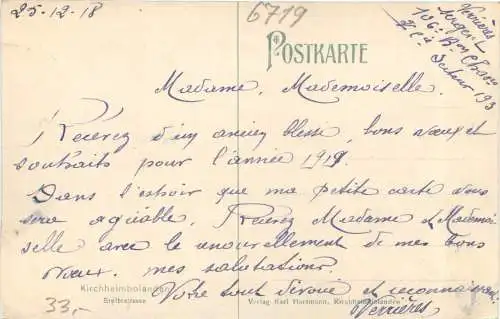 25-12-18
6719
Verrières
Sergent
106e Bon Chass
Secteur 193
POSTKARTE
Madame, Mademoiselle.
Recevez d'un ancien blessé, bons vœux et
souhaits pour l'année 1919.
Dans l'espoir que ma petite carte vous
sera agréable, Recevez Madame et Mademoi
selle avec le renouvellement de mes bons
vœux, mes salutations.
Kirchheimbolanden
Breitestrasse
Votre tout dévoué et reconnaissant
Verlag Karl Hartmann, Kirchheimbolanden
Verrières
33,-